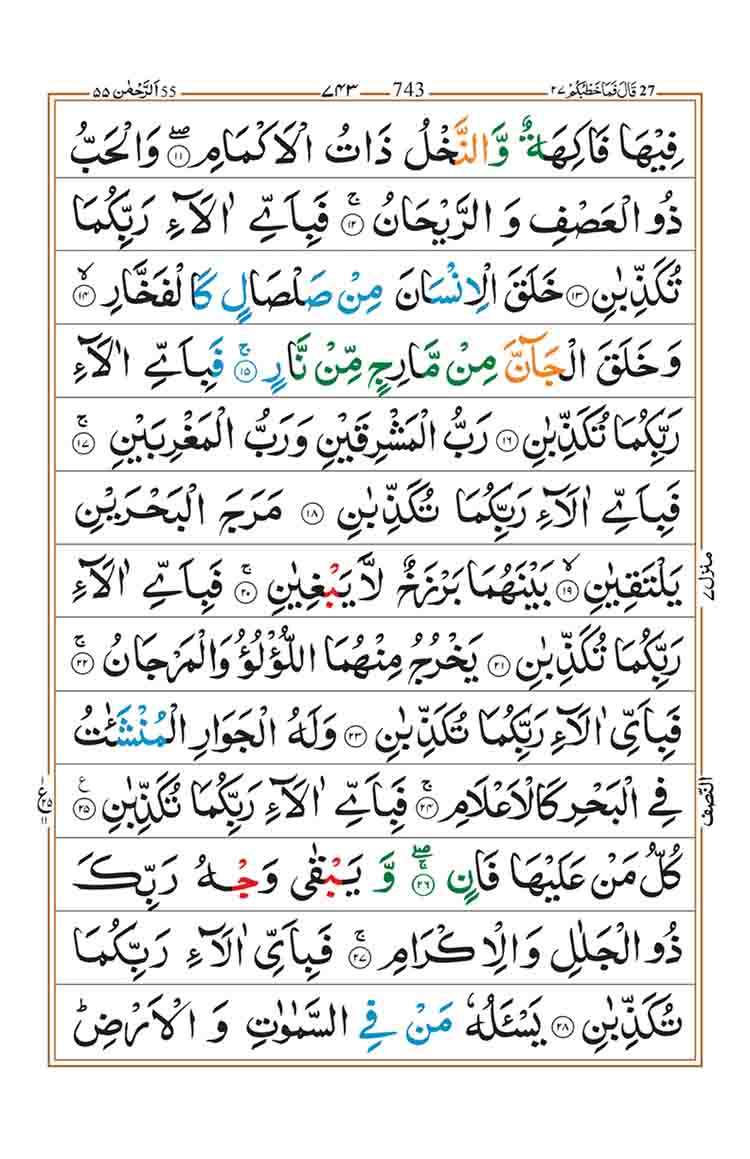 27 قَالَ فَمَا خَطْبُكُمْ ٢٧ 743 ٧٤٣ 55 اَلرَّحْمٰن ٥٥
فِيْهَا فَاكِهَةٌ وَّالنَّخْلُ ذَاتُ الْاَكْمَامِ ۖ ١١ وَالْحَبُّ
ذُو الْعَصْفِ وَ الرَّيْحَانُ ۚ ١٢ فَبِاَيِّ اٰلَآءِ رَبِّكُمَا
تُكَذِّبٰنِ ١٣ خَلَقَ الْاِنْسَانَ مِنْ صَلْصَالٍ كَالْفَخَّارِ ۙ ١٤
وَ خَلَقَ الْجَآنَّ مِنْ مَّارِجٍ مِّنْ نَّارٍ ۚ ١٥ فَبِاَيِّ اٰلَآءِ
رَبِّكُمَا تُكَذِّبٰنِ ١٦ رَبُّ الْمَشْرِقَيْنِ وَرَبُّ الْمَغْرِبَيْنِ ۚ ١٧
فَبِاَيِّ اٰلَآءِ رَبِّكُمَا تُكَذِّبٰنِ ١٨ مَرَجَ الْبَحْرَيْنِ
يَلْتَقِيٰنِ ۙ ١٩ بَيْنَهُمَا بَرْزَخٌ لَّا يَبْغِيٰنِ ۚ ٢٠ فَبِاَيِّ اٰلَآءِ
رَبِّكُمَا تُكَذِّبٰنِ ٢١ يَخْرُجُ مِنْهُمَا اللُّؤْلُؤُ وَالْمَرْجَانُ ۚ ٢٢
فَبِاَيِّ اٰلَآءِ رَبِّكُمَا تُكَذِّبٰنِ ٢٣ وَلَهُ الْجَوَارِ الْمُنْشَئٰتُ
فِي الْبَحْرِ كَالْاَعْلَامِ ۚ ٢٤ فَبِاَيِّ اٰلَآءِ رَبِّكُمَا تُكَذِّبٰنِ ٢٥ ع
كُلُّ مَنْ عَلَيْهَا فَانٍ ۚۖ ٢٦ وَّ يَبْقٰى وَجْهُ رَبِّكَ
ذُو الْجَلٰلِ وَالْاِكْرَامِ ۚ ٢٧ فَبِاَيِّ اٰلَآءِ رَبِّكُمَا
تُكَذِّبٰنِ ٢٨ يَسْئَلُهٗ مَنْ فِي السَّمٰوٰتِ وَ الْاَرْضِ ؕ
منزل ٧
النصف